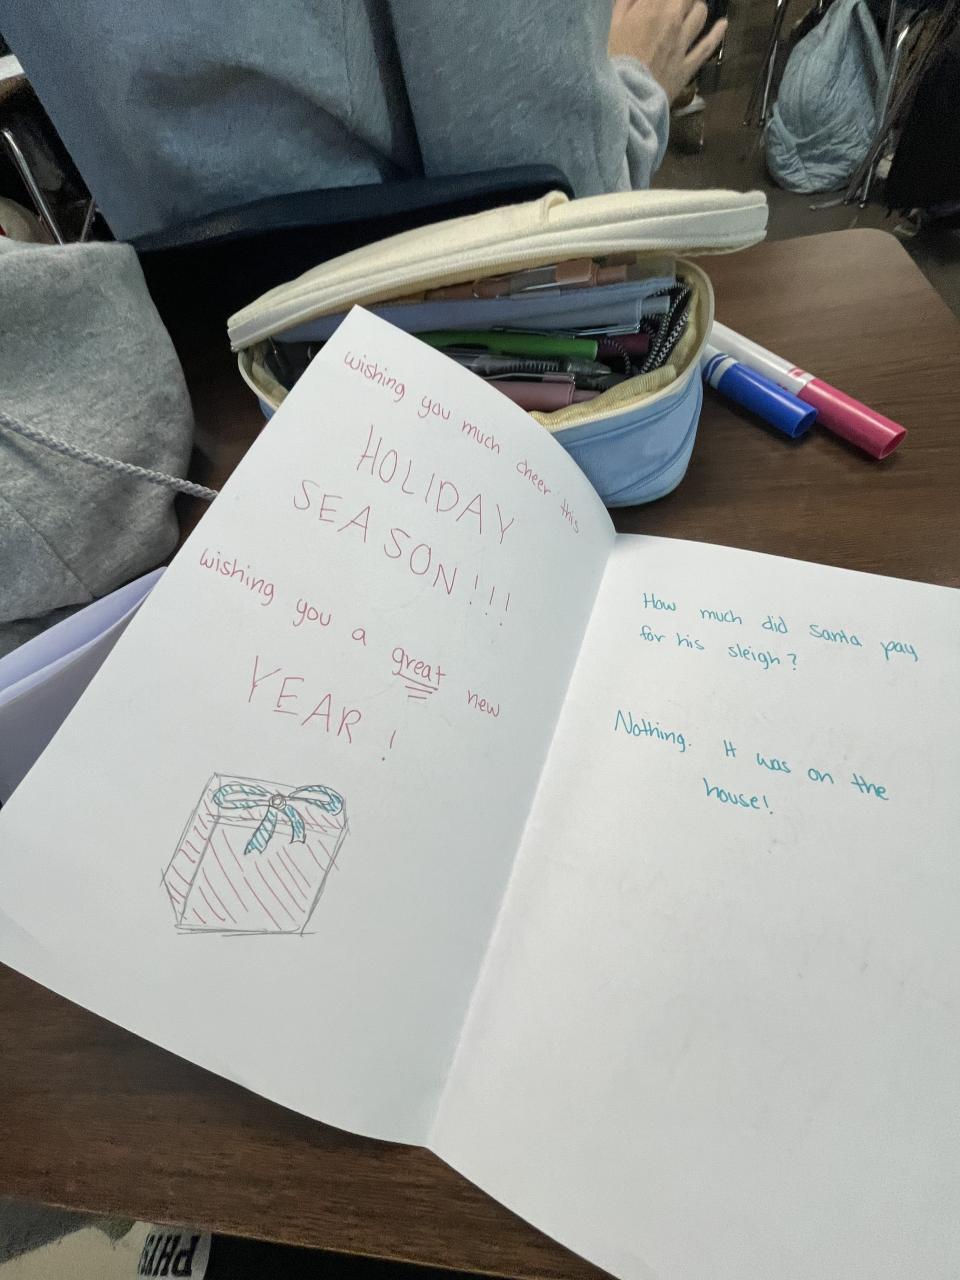 wishing you much cheer this
HOLIDAY
SEASON!!!
wishing you a great new
YEAR!
How much did Santa pay
for his sleigh?
Nothing. It was on the
house!